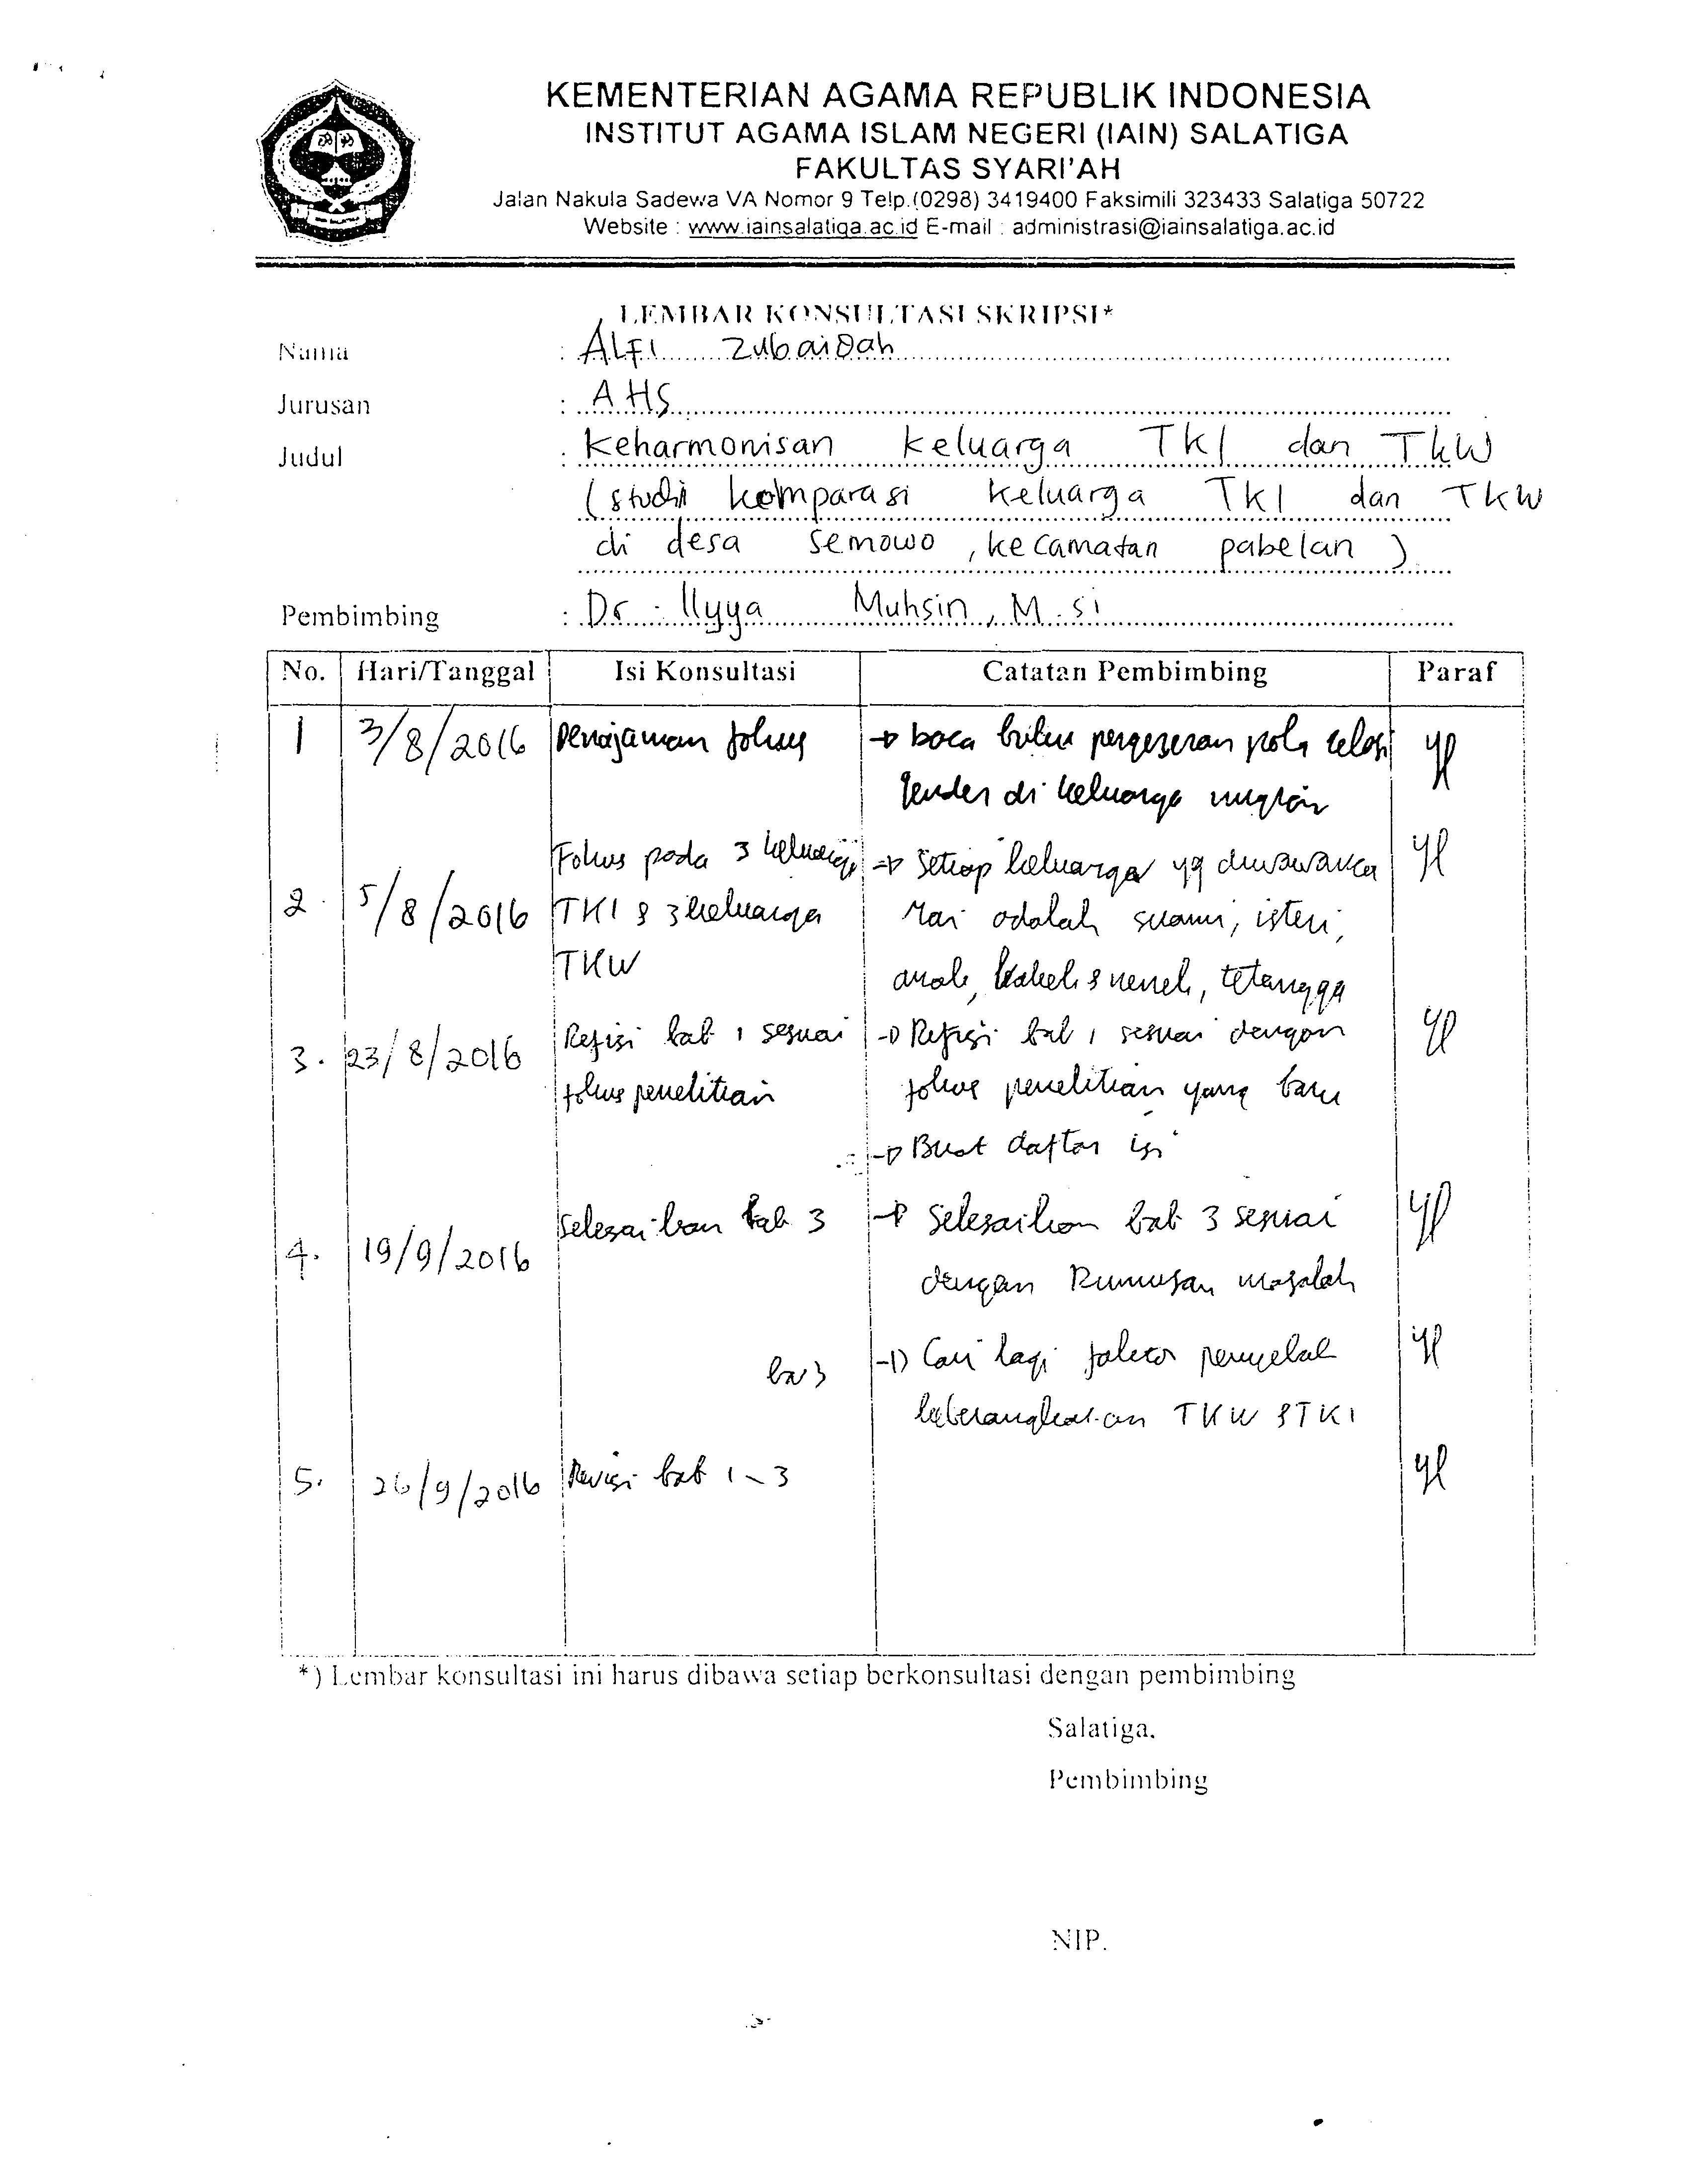 KEMENTERIAN AGAMA REPUBLIK INDONESIA
INSTITUT AGAMA ISLAM NEGERI (IAIN) SALATIGA
FAKULTAS SYARI'AH
Jalan Nakula Sadewa VA Nomor 9 Telp.(0298) 3419400 Faksimili 323433 Salatiga 50722
Website : www.iainsalatiga.ac.id E-mail : administrasi@iainsalatiga.ac.id
LEMBAR KONSULTASI SKRIPSI*
Nama : ALFI Zubaidah
Jurusan : AHS
Judul : Keharmonisan keluarga TKI dan TKW
(studi komparasi keluarga TKI dan TKW
di desa Semowo, kecamatan pabelan)
Pembimbing : Dr. Ilyya Muhsin, M.si
No. Hari/Tanggal Isi Konsultasi Catatan Pembimbing Paraf
1 3/8/2016 Penajaman fokus → baca buku pergeseran pola relasi
gender di keluarga
Fokus pada 3 keluarga → Setiap keluarga yg diwawanca
2. 5/8/2016 TKI & 3 keluarga rai adalah suami, isteri,
TKW anak, kakek & nenek, tetangga
3. 23/8/2016 Refisi bab 1 sesuai → Refisi bab 1 sesuai dengan
fokus penelitian fokus penelitian yang baru
→ Buat daftar isi
4. 19/9/2016 Selesaikan bab 3 → Selesaikan bab 3 sesuai
dengan Rumusan masalah
→ Cari lagi faktor penyebab
keberangkatan TKW & TKI
5. 26/9/2016 Revisi bab 1 - 3
*) Lembar konsultasi ini harus dibawa setiap berkonsultasi dengan pembimbing
Salatiga,
Pembimbing
NIP.